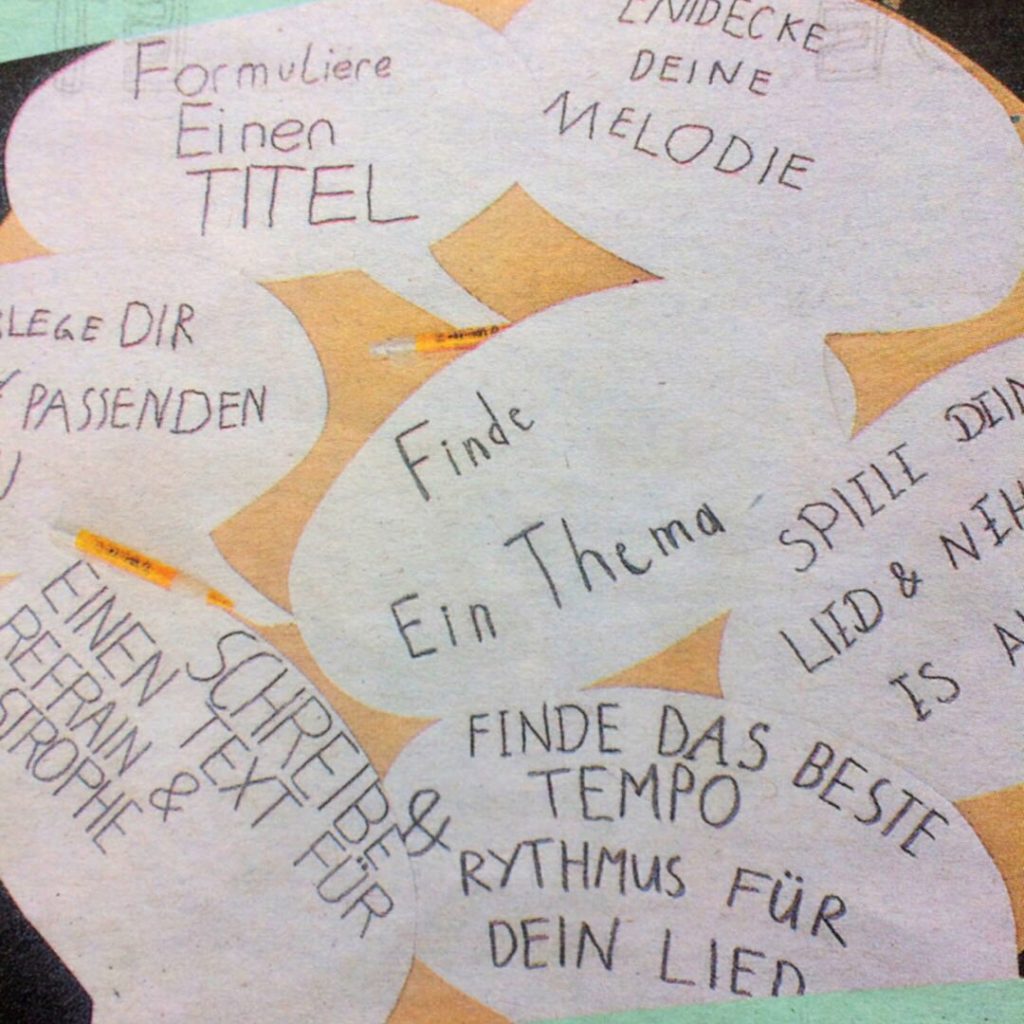 Formuliere
Einen
TITEL
ENTDECKE
DEINE
MELODIE
LEGE DIR
PASSENDEN
Finde
Ein Thema
SPIELE DEIN
LIED & NEH
IS A
SCHREIBE
EINEN TEXT FÜR
REFRAIN &
STROPHE
FINDE DAS BESTE
TEMPO
& RYTHMUS FÜR
DEIN LIED